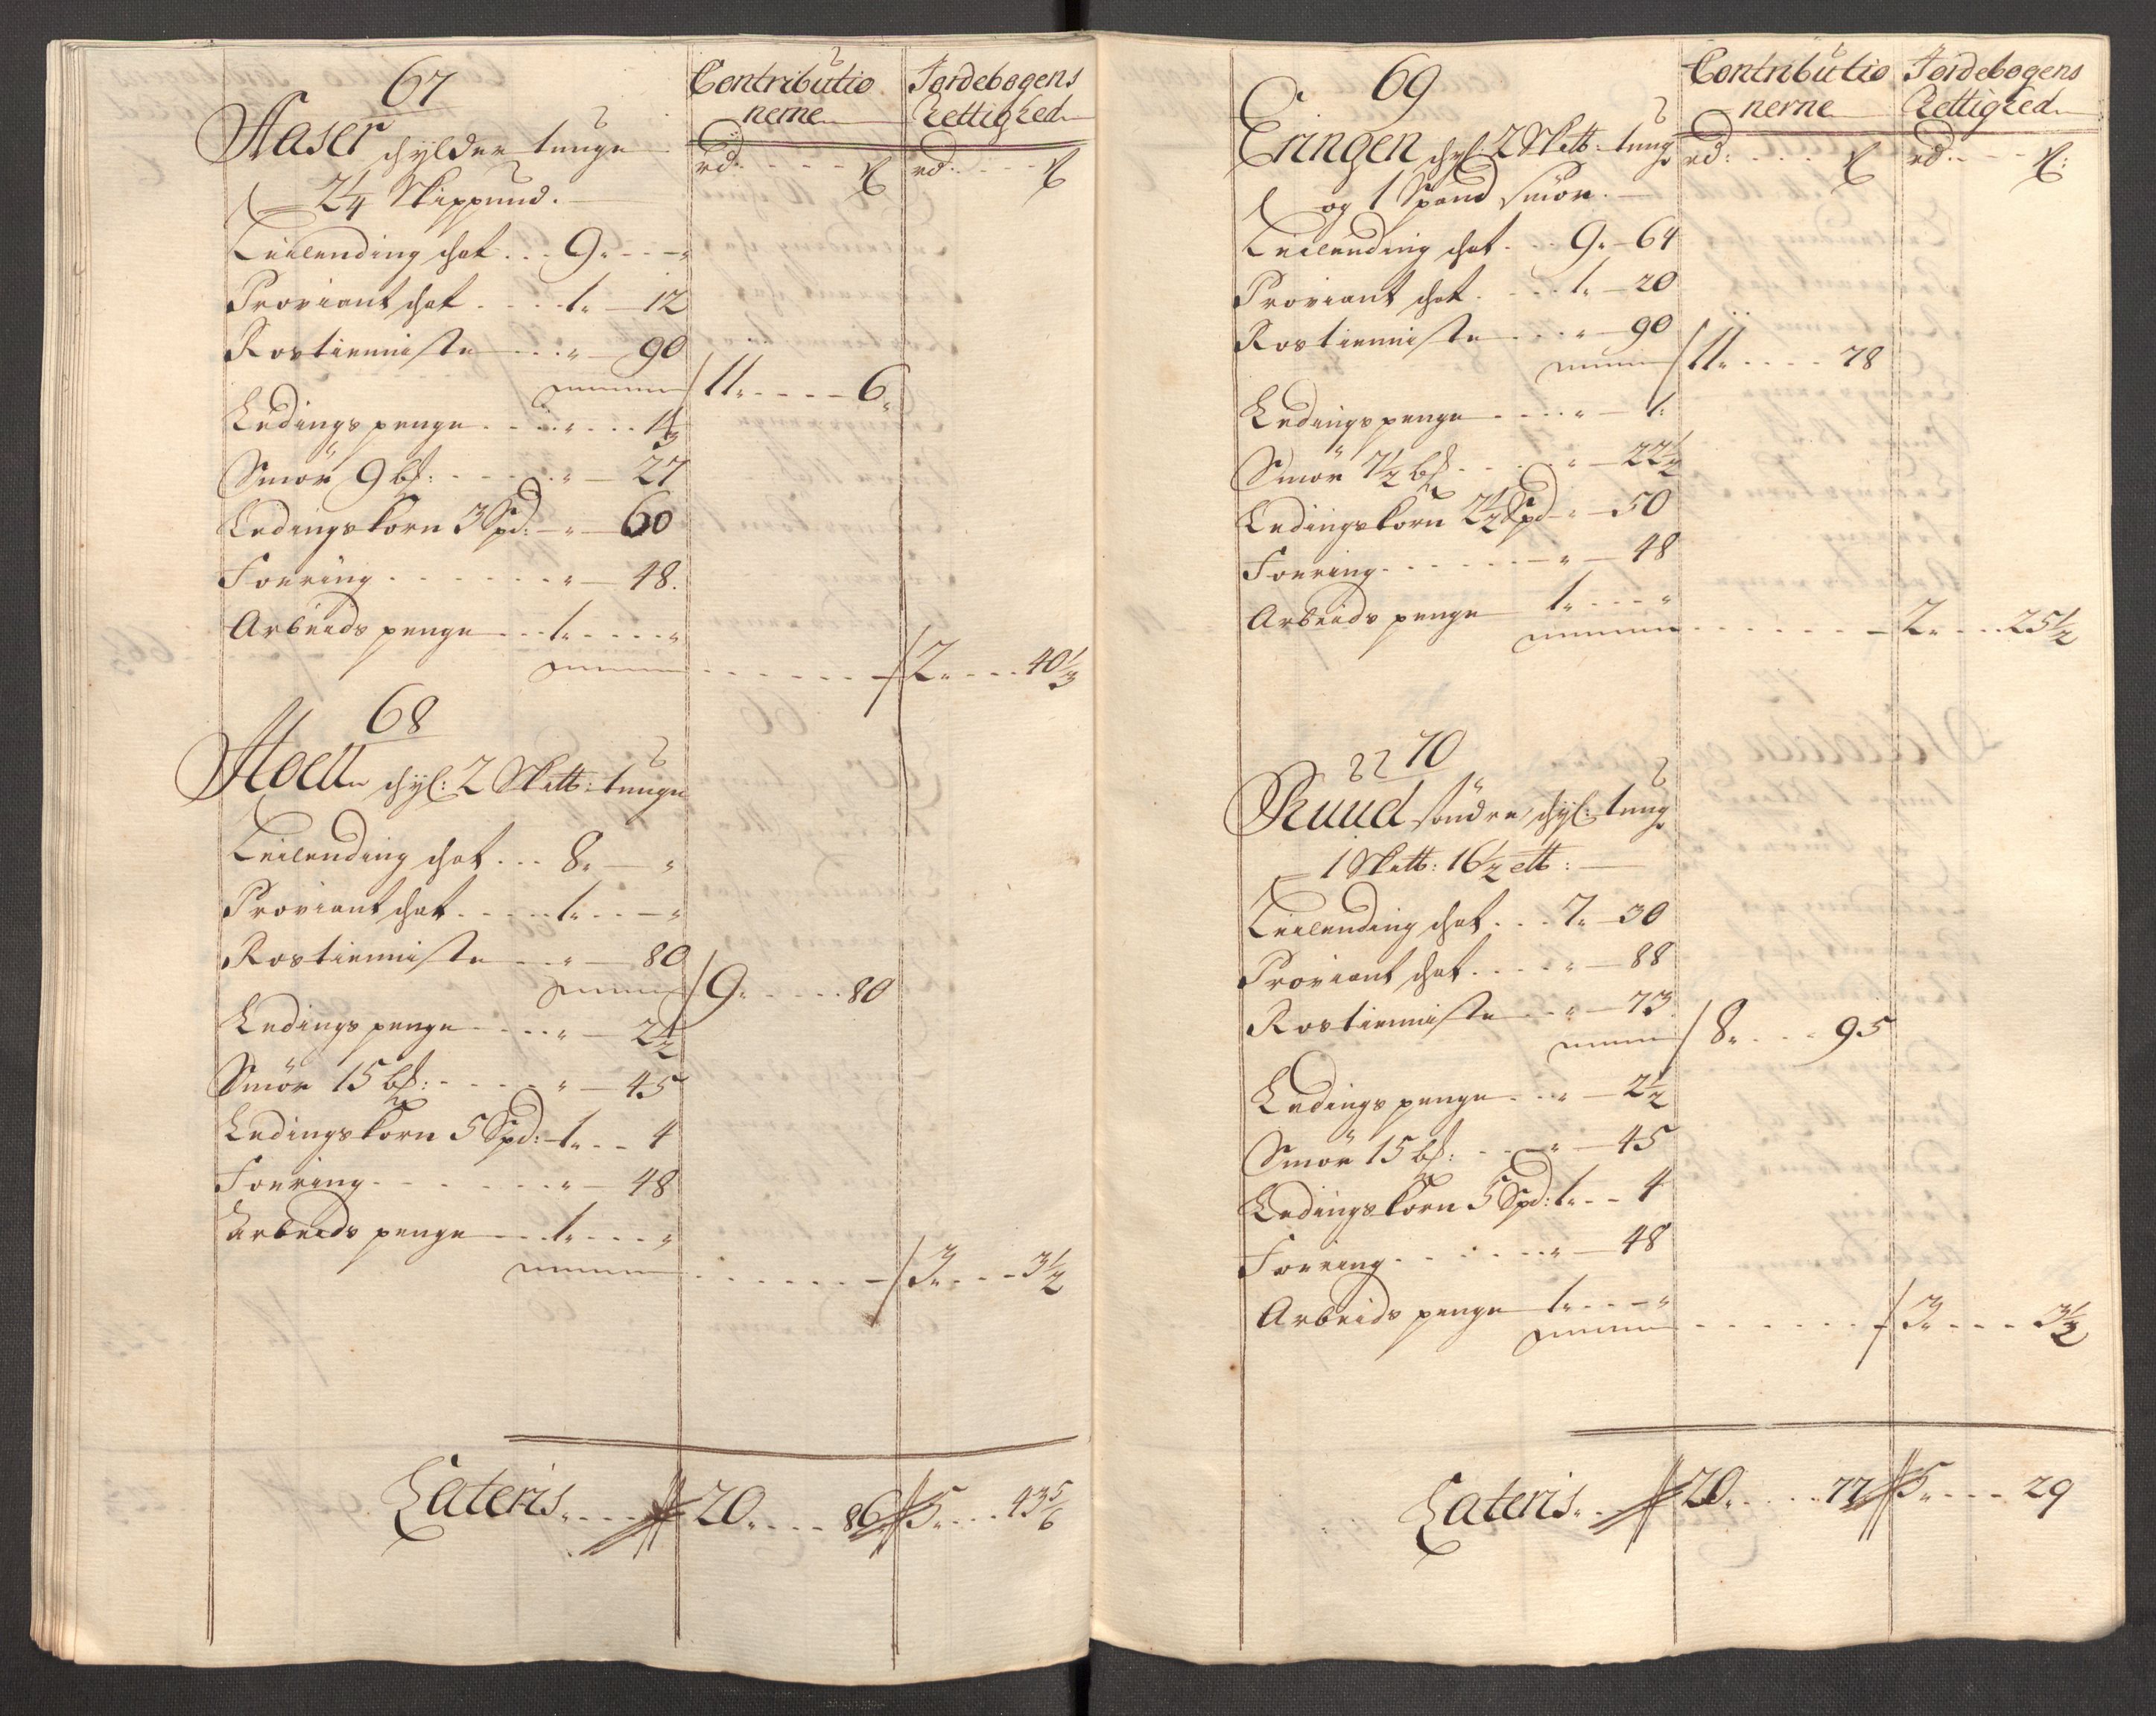 67
Contributio
nerne
Jordebogens
Rettighed
Aaser schylder tunge
2 1/4 Skippund.
rd: ß rd: ß
Leilending schat . . . 9 „ - - - „
Proviant schat . . . . 1 „ — 12
Rostienniste . . . „ — 90
11 „ - - - - 6 „
Ledings penge . . . „ . . . 1 1/3
Smör 9 bß: - - - - „ — 27
Ledingskorn 3 Spd: - „ — 60
Foering . . . . . . „ — 48.
Arbeids penge . . . 1 „ . . . . „
2 „ - - - 40 1/3
68
Hoen schyl: 2 Sk℔: tunge
Leilending schat . . . 8 „ — „
Proviant schat . . . . 1 „ . . — „
Rostienniste . . . „ — 80
9 „ . . . . 80
Ledings penge . . . . „ — 2 1/2
Smör 15 bß: - - - - „ — 45
Ledingskorn 5 Spd: - 1 „ - - 4
Foering . . . . . . „ — 48
Arbeids penge . . . 1 „ . . . „
3 „ - - - 3 1/2
Lateris . . . . 20 „ . . . 86 5 „ . . . 43 5/6
69
Contributio
nerne
Jordebogens
Rettighed
Eringen schyl: 2 Sk℔: tunge
og 1 Spand smör. —
rd: ß rd: ß:
Leilending schat . . . 9 „ — 64
Proviant schat . . . . 1 „ — 20
Rostienniste . . . „ — 90
11 „ . . . . 78
Ledings penge . . . . „ — 1.
Smör 7 1/2 bß . . . . „ — 22 1/2
Ledingskorn 2 1/2 Spd - „ — 50
Foering . . . . . . „ — 48
Arbeids penge 1 „ . . . „
2 „ . . . 25 1/2
70
Ruud söndre schyl: tunge
1 Sk℔: 16 1/2 ℔: —
Leilending schat . . . 7 „ — 30
Proviant schat . . . . „ — 88
Rostienniste . . „ — 73.
8 „ . . . 95
Ledings penge . . . „ — 2 1/2
Smör 15 bß: . . . „ — 45
Ledingskorn 5 Spd: 1 „ - - 4
Foering . . . . . . „ — 48
Arbeids penge 1 „ . . . „
3 „ . . . 3 1/2
Lateris . . 20 „ . . . . 77 5 „ . . . 29